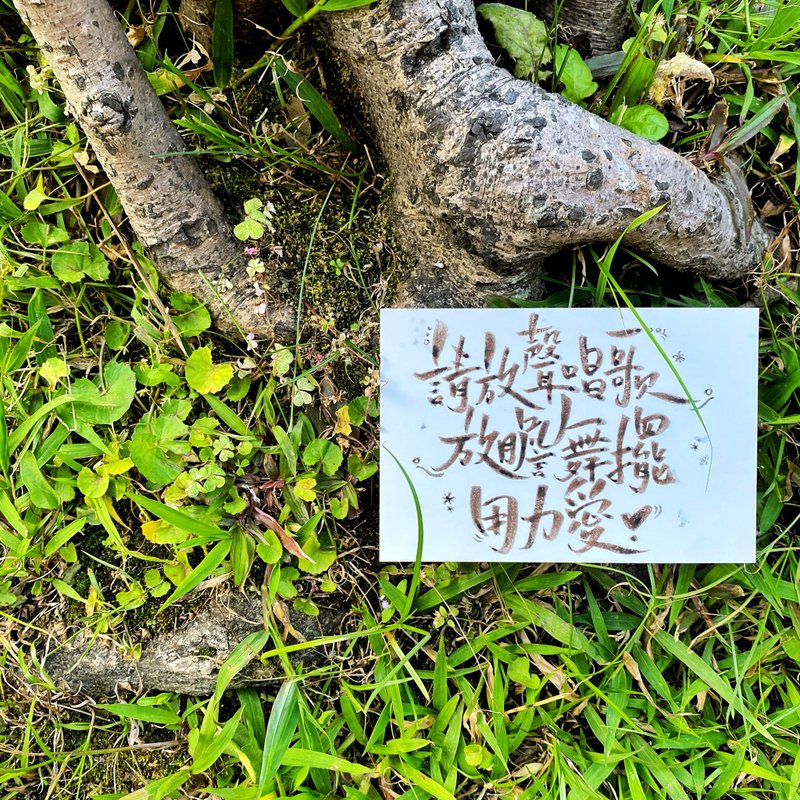 請放聲唱歌
放膽舞擺
用力愛